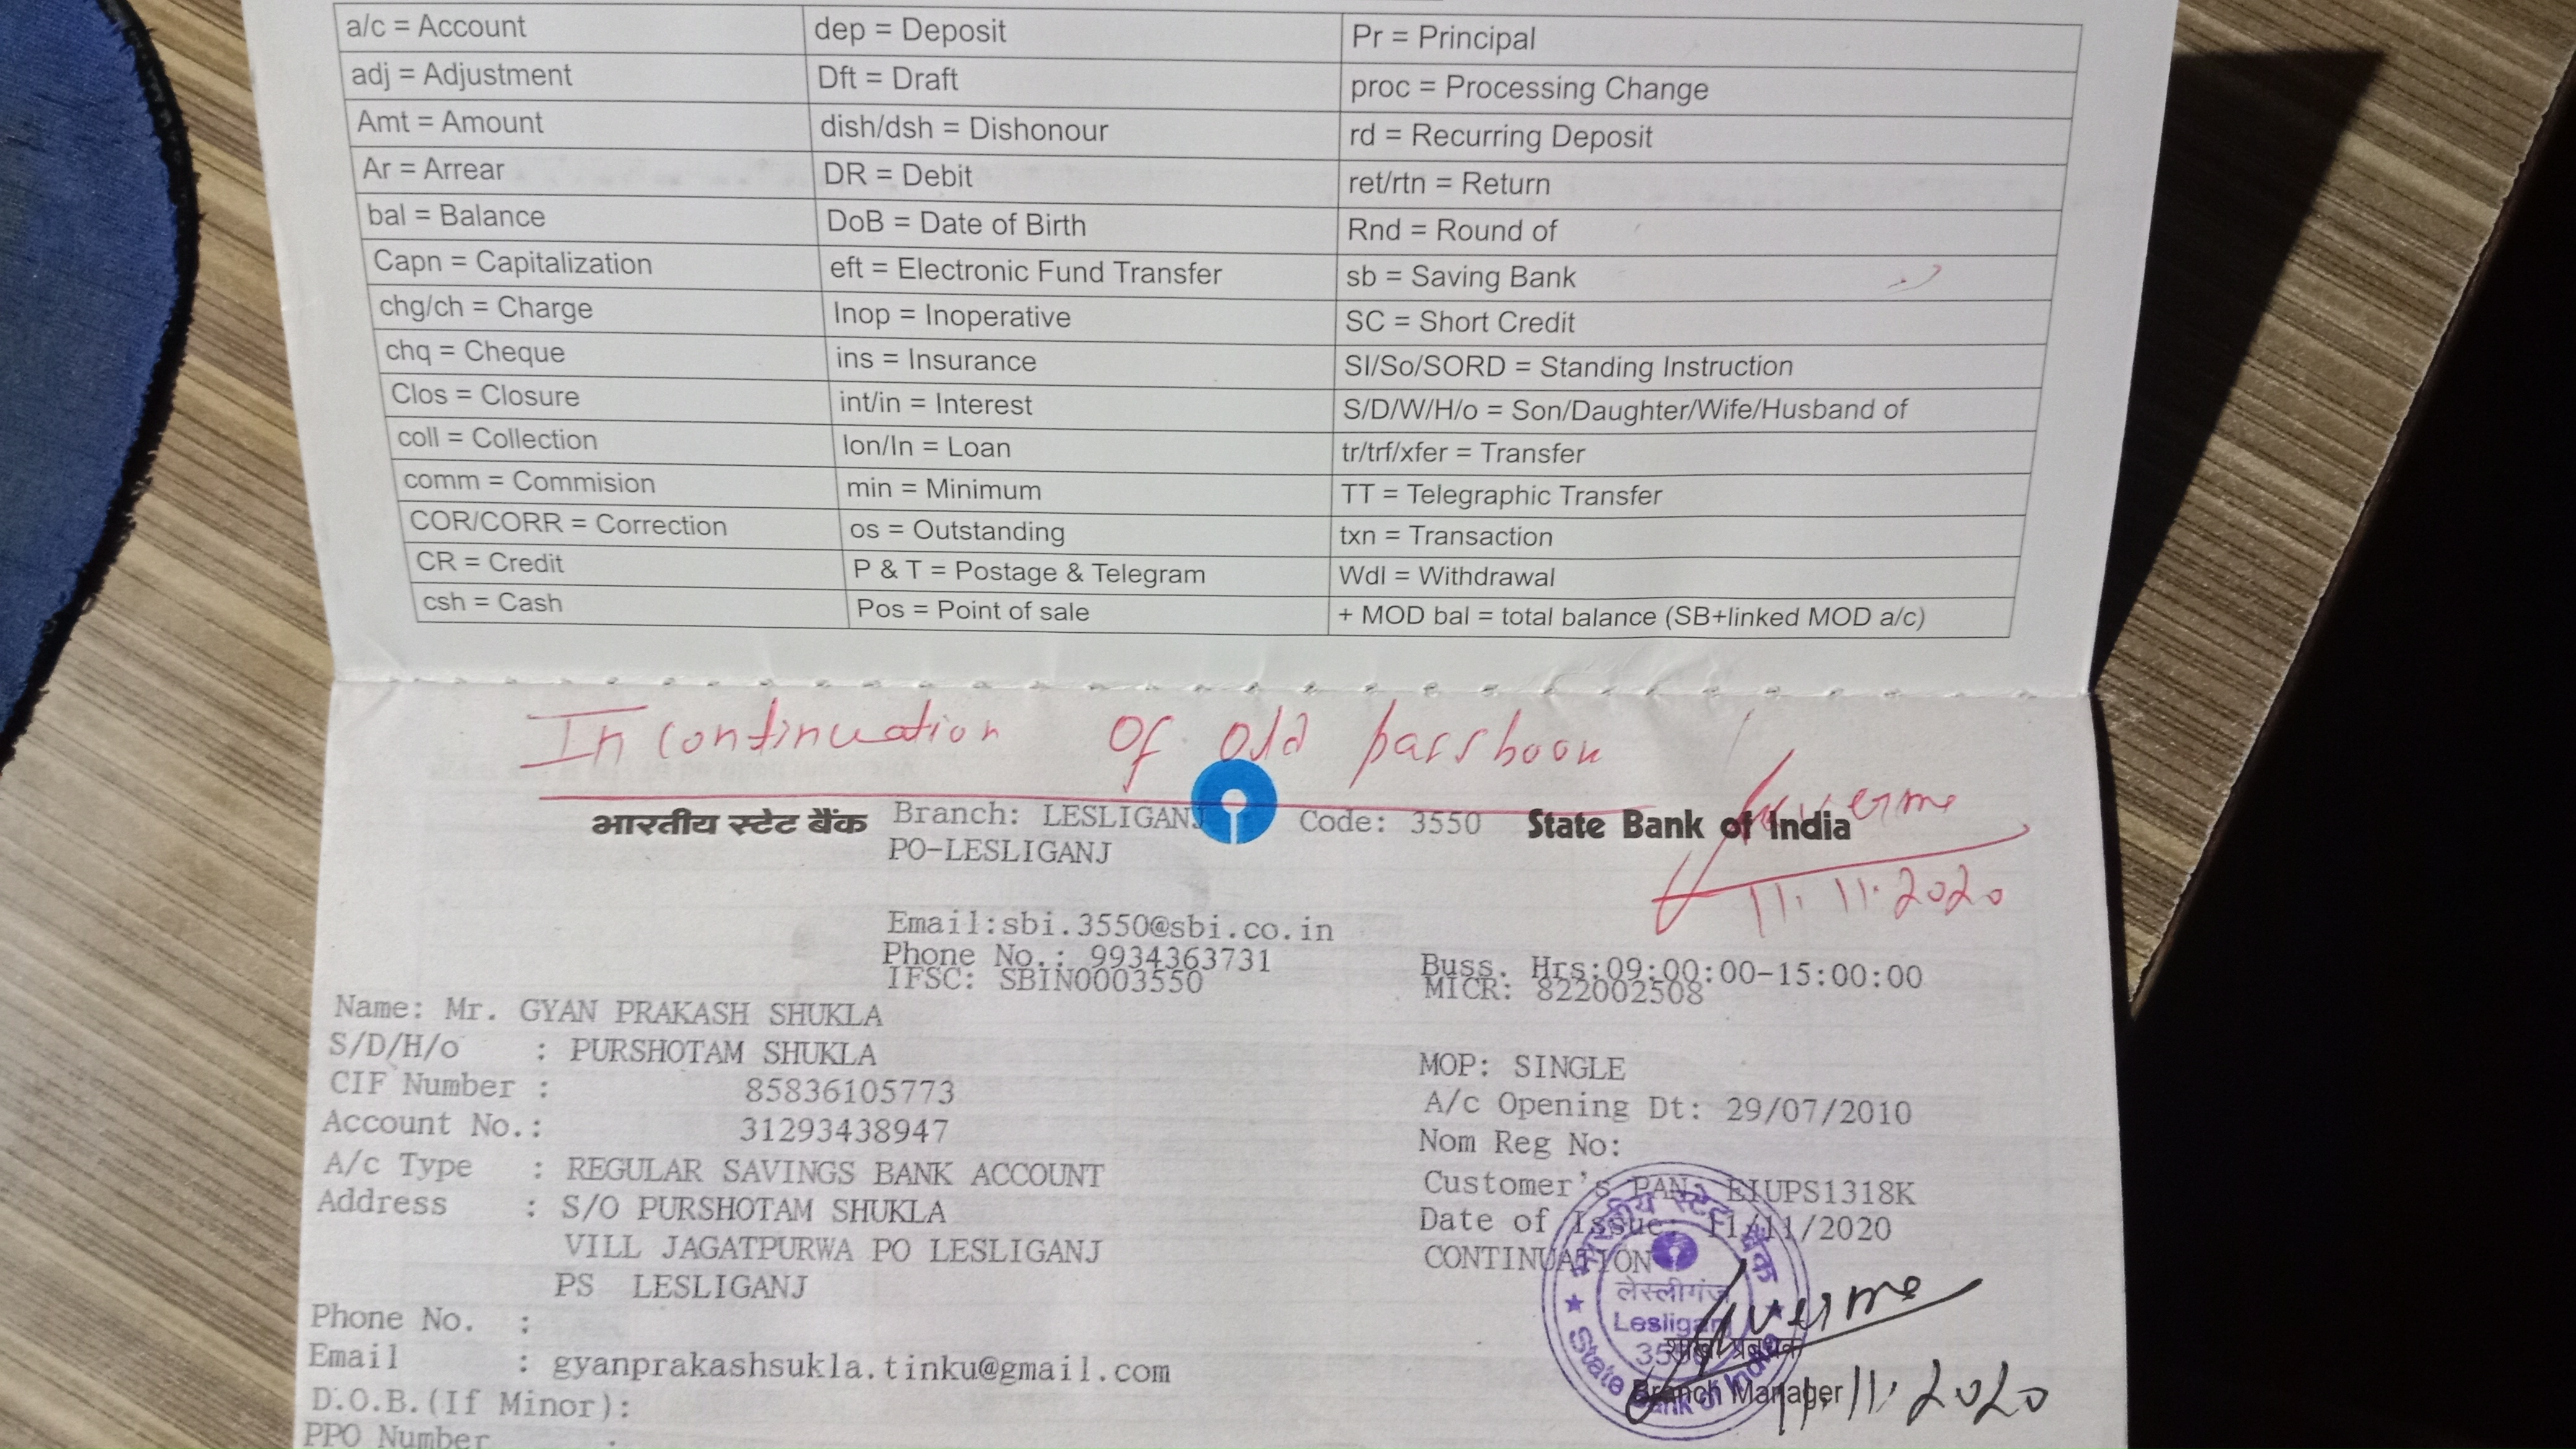 a/c = Account	dep = Deposit	Pr = Principal
adj = Adjustment	Dft = Draft	proc = Processing Change
Amt = Amount	dish/dsh = Dishonour	rd = Recurring Deposit
Ar = Arrear	DR = Debit	ret/rtn = Return
bal = Balance	DoB = Date of Birth	Rnd = Round of
Capn = Capitalization	eft = Electronic Fund Transfer	sb = Saving Bank
chg/ch = Charge	Inop = Inoperative	SC = Short Credit
chq = Cheque	ins = Insurance	SI/So/SORD = Standing Instruction
Clos = Closure	int/in = Interest	S/D/W/H/o = Son/Daughter/Wife/Husband of
coll = Collection	lon/ln = Loan	tr/trf/xfer = Transfer
comm = Commision	min = Minimum	TT = Telegraphic Transfer
COR/CORR = Correction	os = Outstanding	txn = Transaction
CR = Credit	P & T = Postage & Telegram	Wdl = Withdrawal
csh = Cash	Pos = Point of sale	+ MOD bal = total balance (SB+linked MOD a/c)
In continuation of old passbook
भारतीय स्टेट बैंक Branch: LESLIGANJ Code: 3550 State Bank of India
PO-LESLIGANJ
11.11.2020
Email:sbi.3550@sbi.co.in
Phone No.: 9934363731 Buss. Hrs:09:00:00-15:00:00
IFSC: SBIN0003550 MICR: 822002508
Name: Mr. GYAN PRAKASH SHUKLA
S/D/H/o : PURSHOTAM SHUKLA MOP: SINGLE
CIF Number : 85836105773 A/c Opening Dt: 29/07/2010
Account No.: 31293438947 Nom Reg No:
A/c Type : REGULAR SAVINGS BANK ACCOUNT Customer's PAN: EIUPS1318K
Address : S/O PURSHOTAM SHUKLA Date of Issue: 11/11/2020
VILL JAGATPURWA PO LESLIGANJ CONTINUATION
PS LESLIGANJ
Phone No. :
Email : gyanprakashsukla.tinku@gmail.com
D.O.B.(If Minor):
PPO Number :
भारतीय स्टेट बैंक
लेस्लीगंज
Lesliganj
3550
State Bank of India
शाखा प्रबन्धक
Branch Manager
11.11.2020